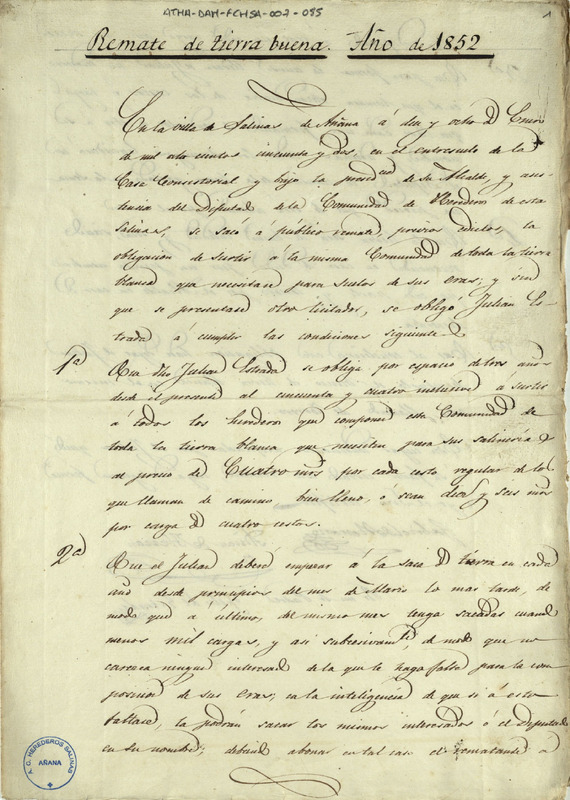 ATHA-DAH-FCHSA-002-085
1
Remate de tierra buena. Año de 1852
En la villa de Salinas de Añana á diez y ocho de Enero
de mil ocho cientos cincuenta y dos, en el entresuelo de la
Casa Consistorial y bajo la presid.cia de su Alcalde, y asis-
tencia del Diputado de la Comunidad de Herederos de estas
Salinas, se sacó á público remate, previos edictos, la
obligacion de surtir á la misma Comunidad de toda la tierra
blanca que necesitase para suelos de sus eras; y sin
que se presentase otro licitador, se obligó Julian Es-
trada á cumplir las condiciones siguientes
1ª Que dho Julian Estrada se obliga por espacio de tres años
desde el presente al cincuenta y cuatro inclusive á surtir
á todos los herederos que componen esta Comunidad de
toda la tierra blanca que necesiten para sus salinerias
al precio de Cuatro mrs por cada cesto regular de los
que llaman de camino bien lleno, ó sean diez y seis mrs
por carga de cuatro cestos.
2ª Que el Julian deberá empezar á la saca de tierra en cada
año desde principios del mes de Marzo lo mas tarde, de
modo que á último, del mismo mes tenga sacadas cuando
menos mil cargas, y asi subcesivam.te, de modo que no
carezca ningun interesado de la que le haga falta para la com-
posicion de sus eras; en la inteligencia de que si á esto
faltase, la podrán sacar los mismos interesados ó el Diputado
en su nombre; debiendo abonar en tal caso el rematante á
A. C. HEREDEROS SALINAS
AÑANA